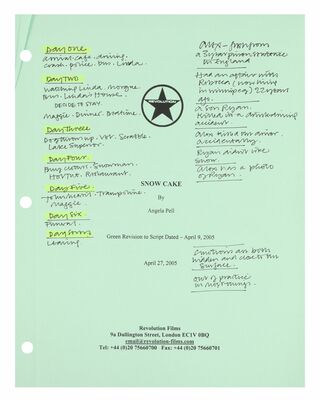 Day One
arrival. cafe. driving.
crash. police. Dr. Linda.
Day Two
watching Linda. morgue.
Linda's House.
DECIDE TO STAY.
Maggie. Dinner. Bedtime.
Day three
Dog throwing up. Vet. Scrabble.
Lake Superior.
Day Four.
Buy clothes. Snowman.
Restaurant.
Day Five
Trampoline
Maggie.
Day Six
Funeral.
Day Seven
Leaving
Alex - prison
sentence
in England
Had an affair with
Rebecca (now living
in winnipeg) 22 years
ago.
A son Ryan.
Killed in a
accident
Alex killed the
accidentally.
Ryan didn't like
snow.
Alex has a photo
of Ryan.
REVOLUTION
SNOW CAKE
By
Angela Pell
Green Revision to Script Dated – April 9, 2005
April 27, 2005
Emotions are both
hidden and close to the
surface.
out of practice
in most things.
Revolution Films
9a Dallington Street, London EC1V 0BQ
email@revolution-films.com
Tel: +44 (0)20 75660700 Fax: +44 (0)20 75660701